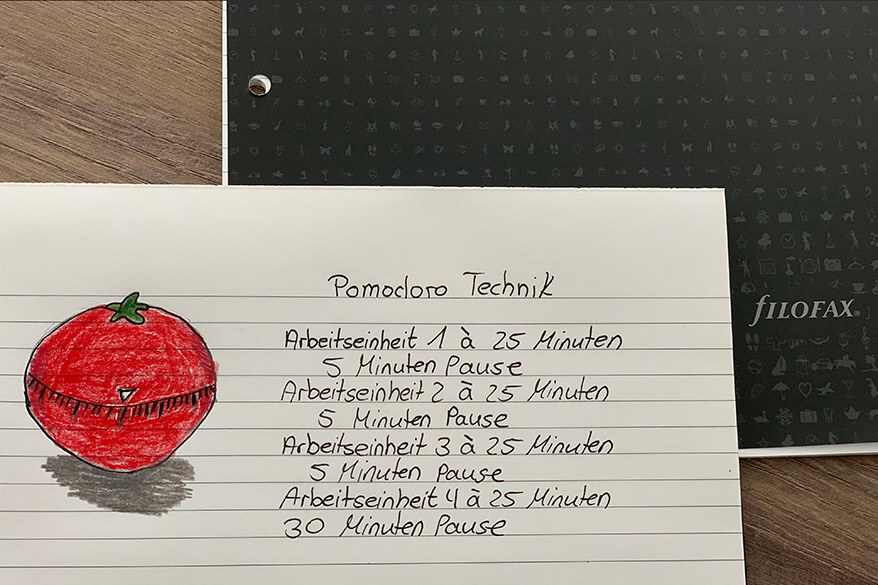 Pomodoro Technik
Arbeitseinheit 1 à 25 Minuten
5 Minuten Pause
Arbeitseinheit 2 à 25 Minuten
5 Minuten Pause
Arbeitseinheit 3 à 25 Minuten
5 Minuten Pause
Arbeitseinheit 4 à 25 Minuten
30 Minuten Pause
fILOFAX®